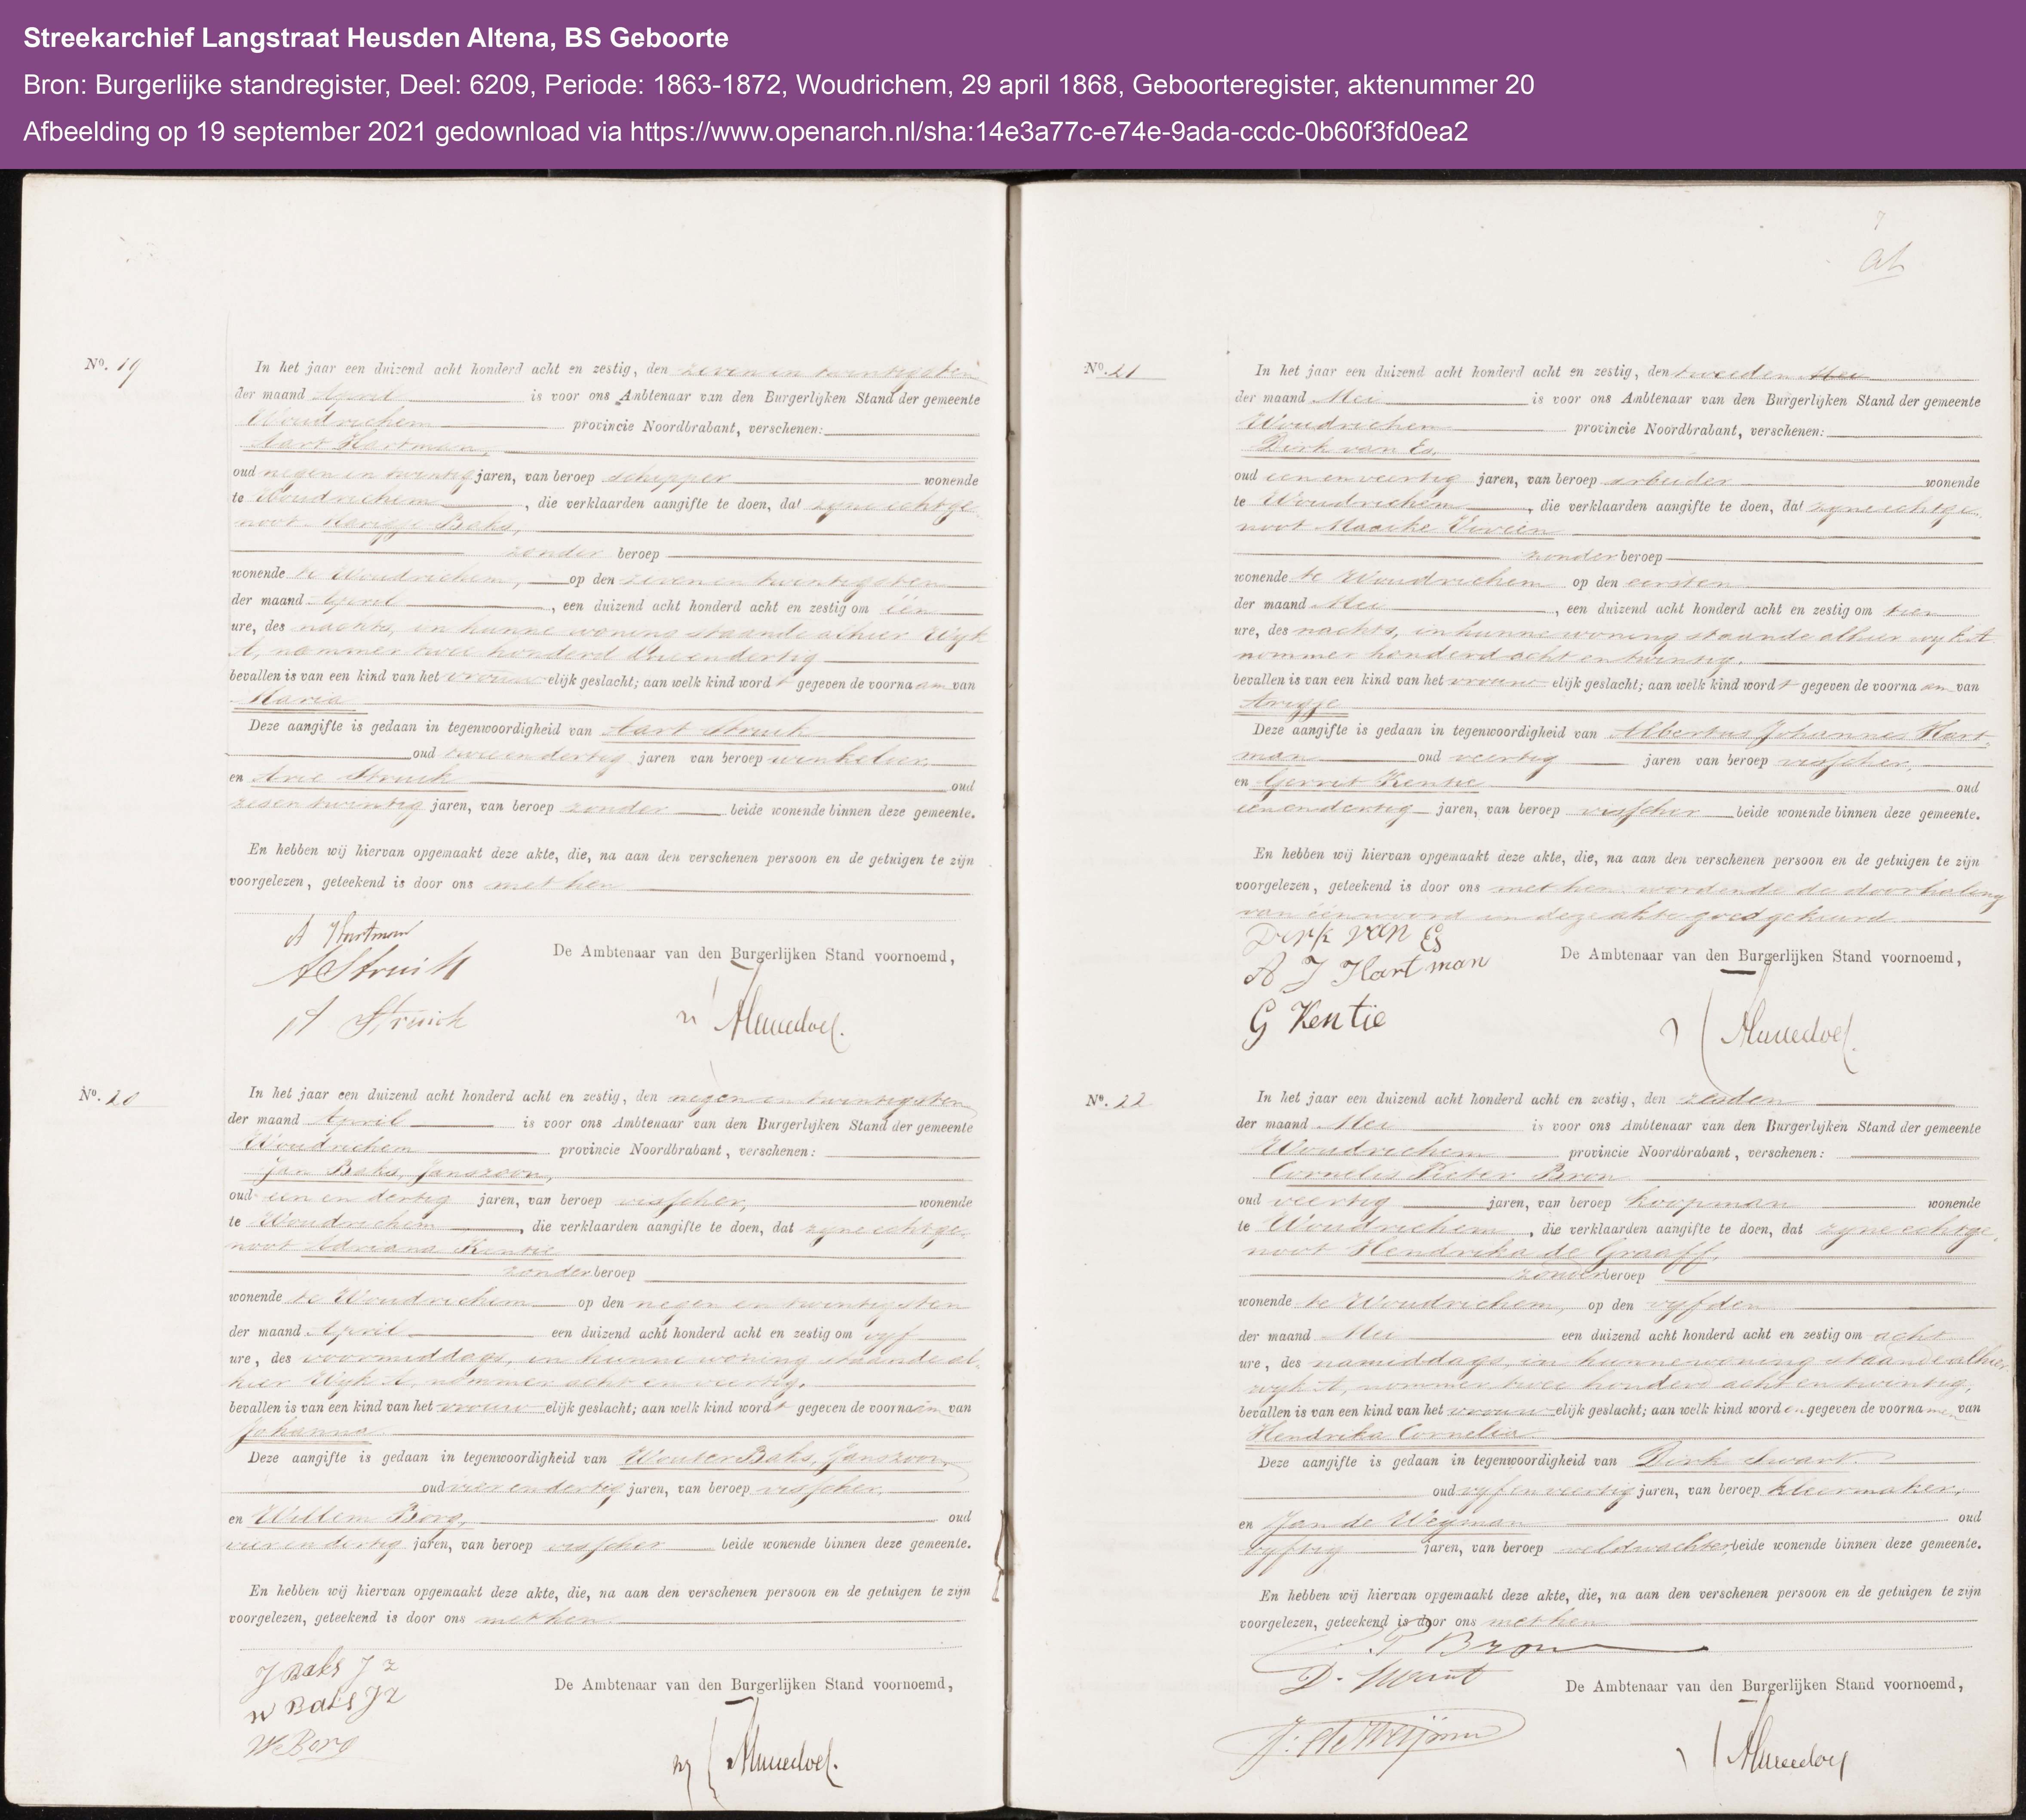 Streekarchief Langstraat Heusden Altena, BS Geboorte
Bron: Burgerlijke standregister, Deel: 6209, Periode: 1863-1872, Woudrichem, 29 april 1868, Geboorteregister, aktenummer 20
Afbeelding op 19 september 2021 gedownload via https://www.openarch.nl/sha:14e3a77c-e74e-9ada-ccdc-0b60f3fd0ea2
No. 19
In het jaar een duizend acht honderd acht en zestig, den zeven en twintigsten
der maand April is voor ons Ambtenaar van den Burgerlijken Stand der gemeente
Woudrichem provincie Noordbrabant, verschenen:
Aart Hartman,
oud negen en twintig jaren, van beroep schipper wonende
te Woudrichem, die verklaarden aangifte te doen, dat zyne echtge
noot Marigje Baks,
zonder beroep
wonende te Woudrichem, op den zeven en twintigsten
der maand April, een duizend acht honderd acht en zestig om één
ure, des nachts, in hunne woning staande alhier Wyk
A, nommer twee honderd drie en dertig
bevallen is van een kind van het vrouwelijk geslacht; aan welk kind wordt gegeven de voornaam van
Maria
Deze aangifte is gedaan in tegenwoordigheid van Aart Struik
oud twee en dertig jaren van beroep winkelier,
en Arie Struik oud
zes en twintig jaren, van beroep zonder beide wonende binnen deze gemeente.
En hebben wij hiervan opgemaakt deze akte, die, na aan den verschenen persoon en de getuigen te zijn
voorgelezen, geteekend is door ons met hen
A Hartman
A Struik
A Struik
De Ambtenaar van den Burgerlijken Stand voornoemd,
No. 20
In het jaar een duizend acht honderd acht en zestig, den negen en twintigsten
der maand April is voor ons Ambtenaar van den Burgerlijken Stand der gemeente
Woudrichem provincie Noordbrabant, verschenen:
Jan Baks, Janszoon,
oud een en dertig jaren, van beroep visscher, wonende
te Woudrichem, die verklaarden aangifte te doen, dat zyne echtge-
noot Adriana Kentie
zonder beroep
wonende te Woudrichem op den negen en twintigsten
der maand April een duizend acht honderd acht en zestig om vyf
ure, des voormiddags, in hunne woning staande al-
hier Wyk A, nommer acht en veertig,
bevallen is van een kind van het vrouwelijk geslacht; aan welk kind wordt gegeven de voornaam van
Johanna
Deze aangifte is gedaan in tegenwoordigheid van Wouter Baks, Janszoon,
oud vier en dertig jaren, van beroep visscher,
en Willem Borg, oud
vier en dertig jaren, van beroep visscher beide wonende binnen deze gemeente.
En hebben wij hiervan opgemaakt deze akte, die, na aan den verschenen persoon en de getuigen te zijn
voorgelezen, geteekend is door ons met hen
J Baks J z
W Baks J z
W Borg
De Ambtenaar van den Burgerlijken Stand voornoemd,
No. 21
In het jaar een duizend acht honderd acht en zestig, den tweeden Mei
der maand Mei is voor ons Ambtenaar van den Burgerlijken Stand der gemeente
Woudrichem provincie Noordbrabant, verschenen:
Dirk van Es,
oud een en veertig jaren, van beroep arbeider wonende
te Woudrichem, die verklaarden aangifte te doen, dat zyne echtge
noot Maaike
zonder beroep
wonende te Woudrichem op den eersten
der maand Mei, een duizend acht honderd acht en zestig om
ure, des nachts, in hunne woning staande alhier wyk A
nommer honderd acht en twintig,
bevallen is van een kind van het vrouwelijk geslacht; aan welk kind wordt gegeven de voornaam van
Arigje
Deze aangifte is gedaan in tegenwoordigheid van Albertus Johannes Hart-
man oud veertig jaren van beroep visscher,
en Gerrit Kentie oud
een en dertig jaren, van beroep visscher beide wonende binnen deze gemeente.
En hebben wij hiervan opgemaakt deze akte, die, na aan den verschenen persoon en de getuigen te zijn
voorgelezen, geteekend is door ons met hen wordende de doorhaling
van één woord in deze akte goedgekeurd
Dirk van Es
A J Hartman
G Kentie
De Ambtenaar van den Burgerlijken Stand voornoemd,
No. 22
In het jaar een duizend acht honderd acht en zestig, den zesden
der maand Mei is voor ons Ambtenaar van den Burgerlijken Stand der gemeente
Woudrichem provincie Noordbrabant, verschenen:
Cornelis Pieter Bron
oud veertig jaren, van beroep koopman wonende
te Woudrichem, die verklaarden aangifte te doen, dat zyne echtge-
noot Hendrika de Graaff,
zonder beroep
wonende te Woudrichem, op den vyfden
der maand Mei een duizend acht honderd acht en zestig om acht
ure, des namiddags, in hunne woning staande alhier
wyk A, nommer twee honderd acht en twintig,
bevallen is van een kind van het vrouwelijk geslacht; aan welk kind worden gegeven de voornamen van
Hendrika Cornelia
Deze aangifte is gedaan in tegenwoordigheid van Dirk Swart
oud vyf en veertig jaren, van beroep kleermaker,
en Jan de Weyman oud
vyftig jaren, van beroep veldwachter, beide wonende binnen deze gemeente.
En hebben wij hiervan opgemaakt deze akte, die, na aan den verschenen persoon en de getuigen te zijn
voorgelezen, geteekend is door ons met hen
C. P Bron
D. Swart
De Ambtenaar van den Burgerlijken Stand voornoemd,